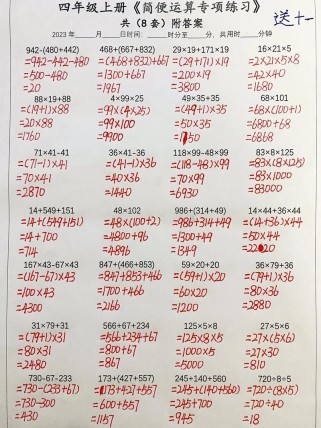 四年级上册《简便运算专项练习》
共（8套）附答案
送十一
2023年____月____日时间：____时分至____分，共用时____分钟
942-(480+442) 468+(667+832) 29×19+171×19 16×21×5
=942-442-480 =(468+832)+667 =(29+171)×19 =2×21×5×8
=500-480 =1300+667 =200×19 =42×40
=20 1967 =3800 =1680
88×19+88 4×99×25 49×35+35 68×101
=(19+1)×88 =99×(4×25) =(49+1)×35 =68×(100+1)
=20×88 =99×100 =50×35 =6800+68
=1760 =9900 =1750 =6868
71×41-41 36×41-36 118×99-48×99 83×8×125
=(71-1)×41 =(41-1)×36 =(118-48)×99 =83×(8×125)
=70×41 =40×36 =70×99 =83×1000
=2870 =1440 =6930 =83000
14+549+151 48×102 986+(314+49) 14×44+36×44
=14+(549+151) =48×(100+2) =986+314+49 =(14+36)×44
=14+700 =4800+96 =1300+49 =50×44
=714 =4896 =1349 =2200
167×43-67×43 847+(466+853) 59×20+20 36×79+36
=(167-67)×43 =847+853+466 =(59+1)×20 =(79+1)×36
=100×43 =1700+466 =60×20 =80×36
=4300 =2166 =1200 =2880
31×79+31 566+67+234 125×5×8 27×5×6
=(79+1)×31 =566+234+67 =125×8×5 =27×(5×6)
=80×31 =800+67 =1000×5 =27×30
=2480 =867 =5000 =810
730-67-233 173+(427+557) 245+140+560 720÷8÷5
=730-(233+67) =173+427+557 =245+(140+560) =720÷(8×5)
=730-300 =600+557 =245+700 =720÷40
=430 =1157 =945 =18